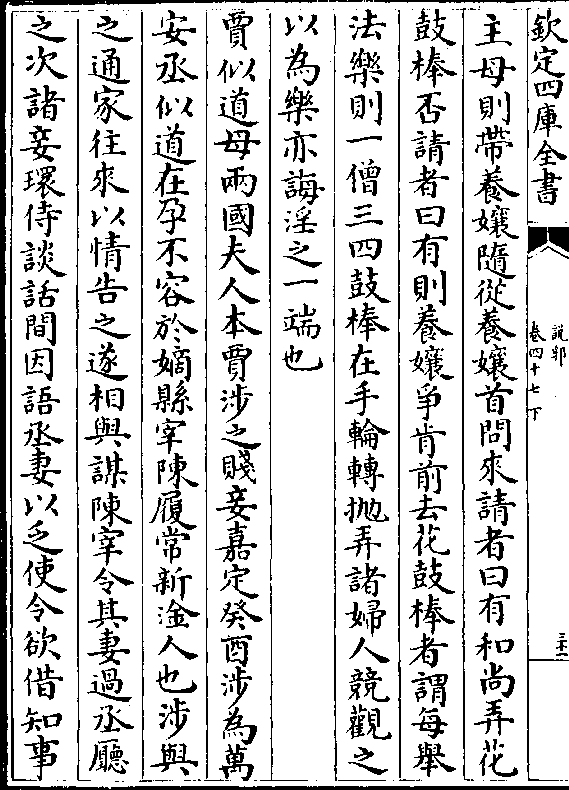 欽定四庫全書
說郛
卷四十七下
三十二
主母則帶養孃隨從養孃首問來請者曰有和尚弄花
鼓棒否請者曰有則養孃爭肯前去花鼓棒者謂每舉
法樂則一僧三四鼓棒在手輪轉拋弄諸婦人競觀之
以為樂亦誨淫之一端也
賈似道母兩國夫人本賈涉之賤妾嘉定癸酉涉為萬
安丞似道在孕不容於嫡縣宰陳履常新淦人也涉與
之通家往來以情告之遂相與謀陳宰令其妻過丞廳
之次諸妾環侍談話間因語丞妻以乏使令欲借知事